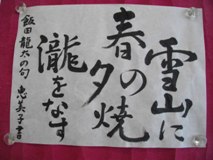 雪山に
春の夕焼
瀧をなす
飯田龍太の句 恵美子書